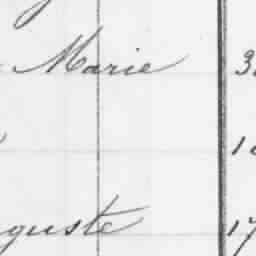 Marie 3
1
guste 17